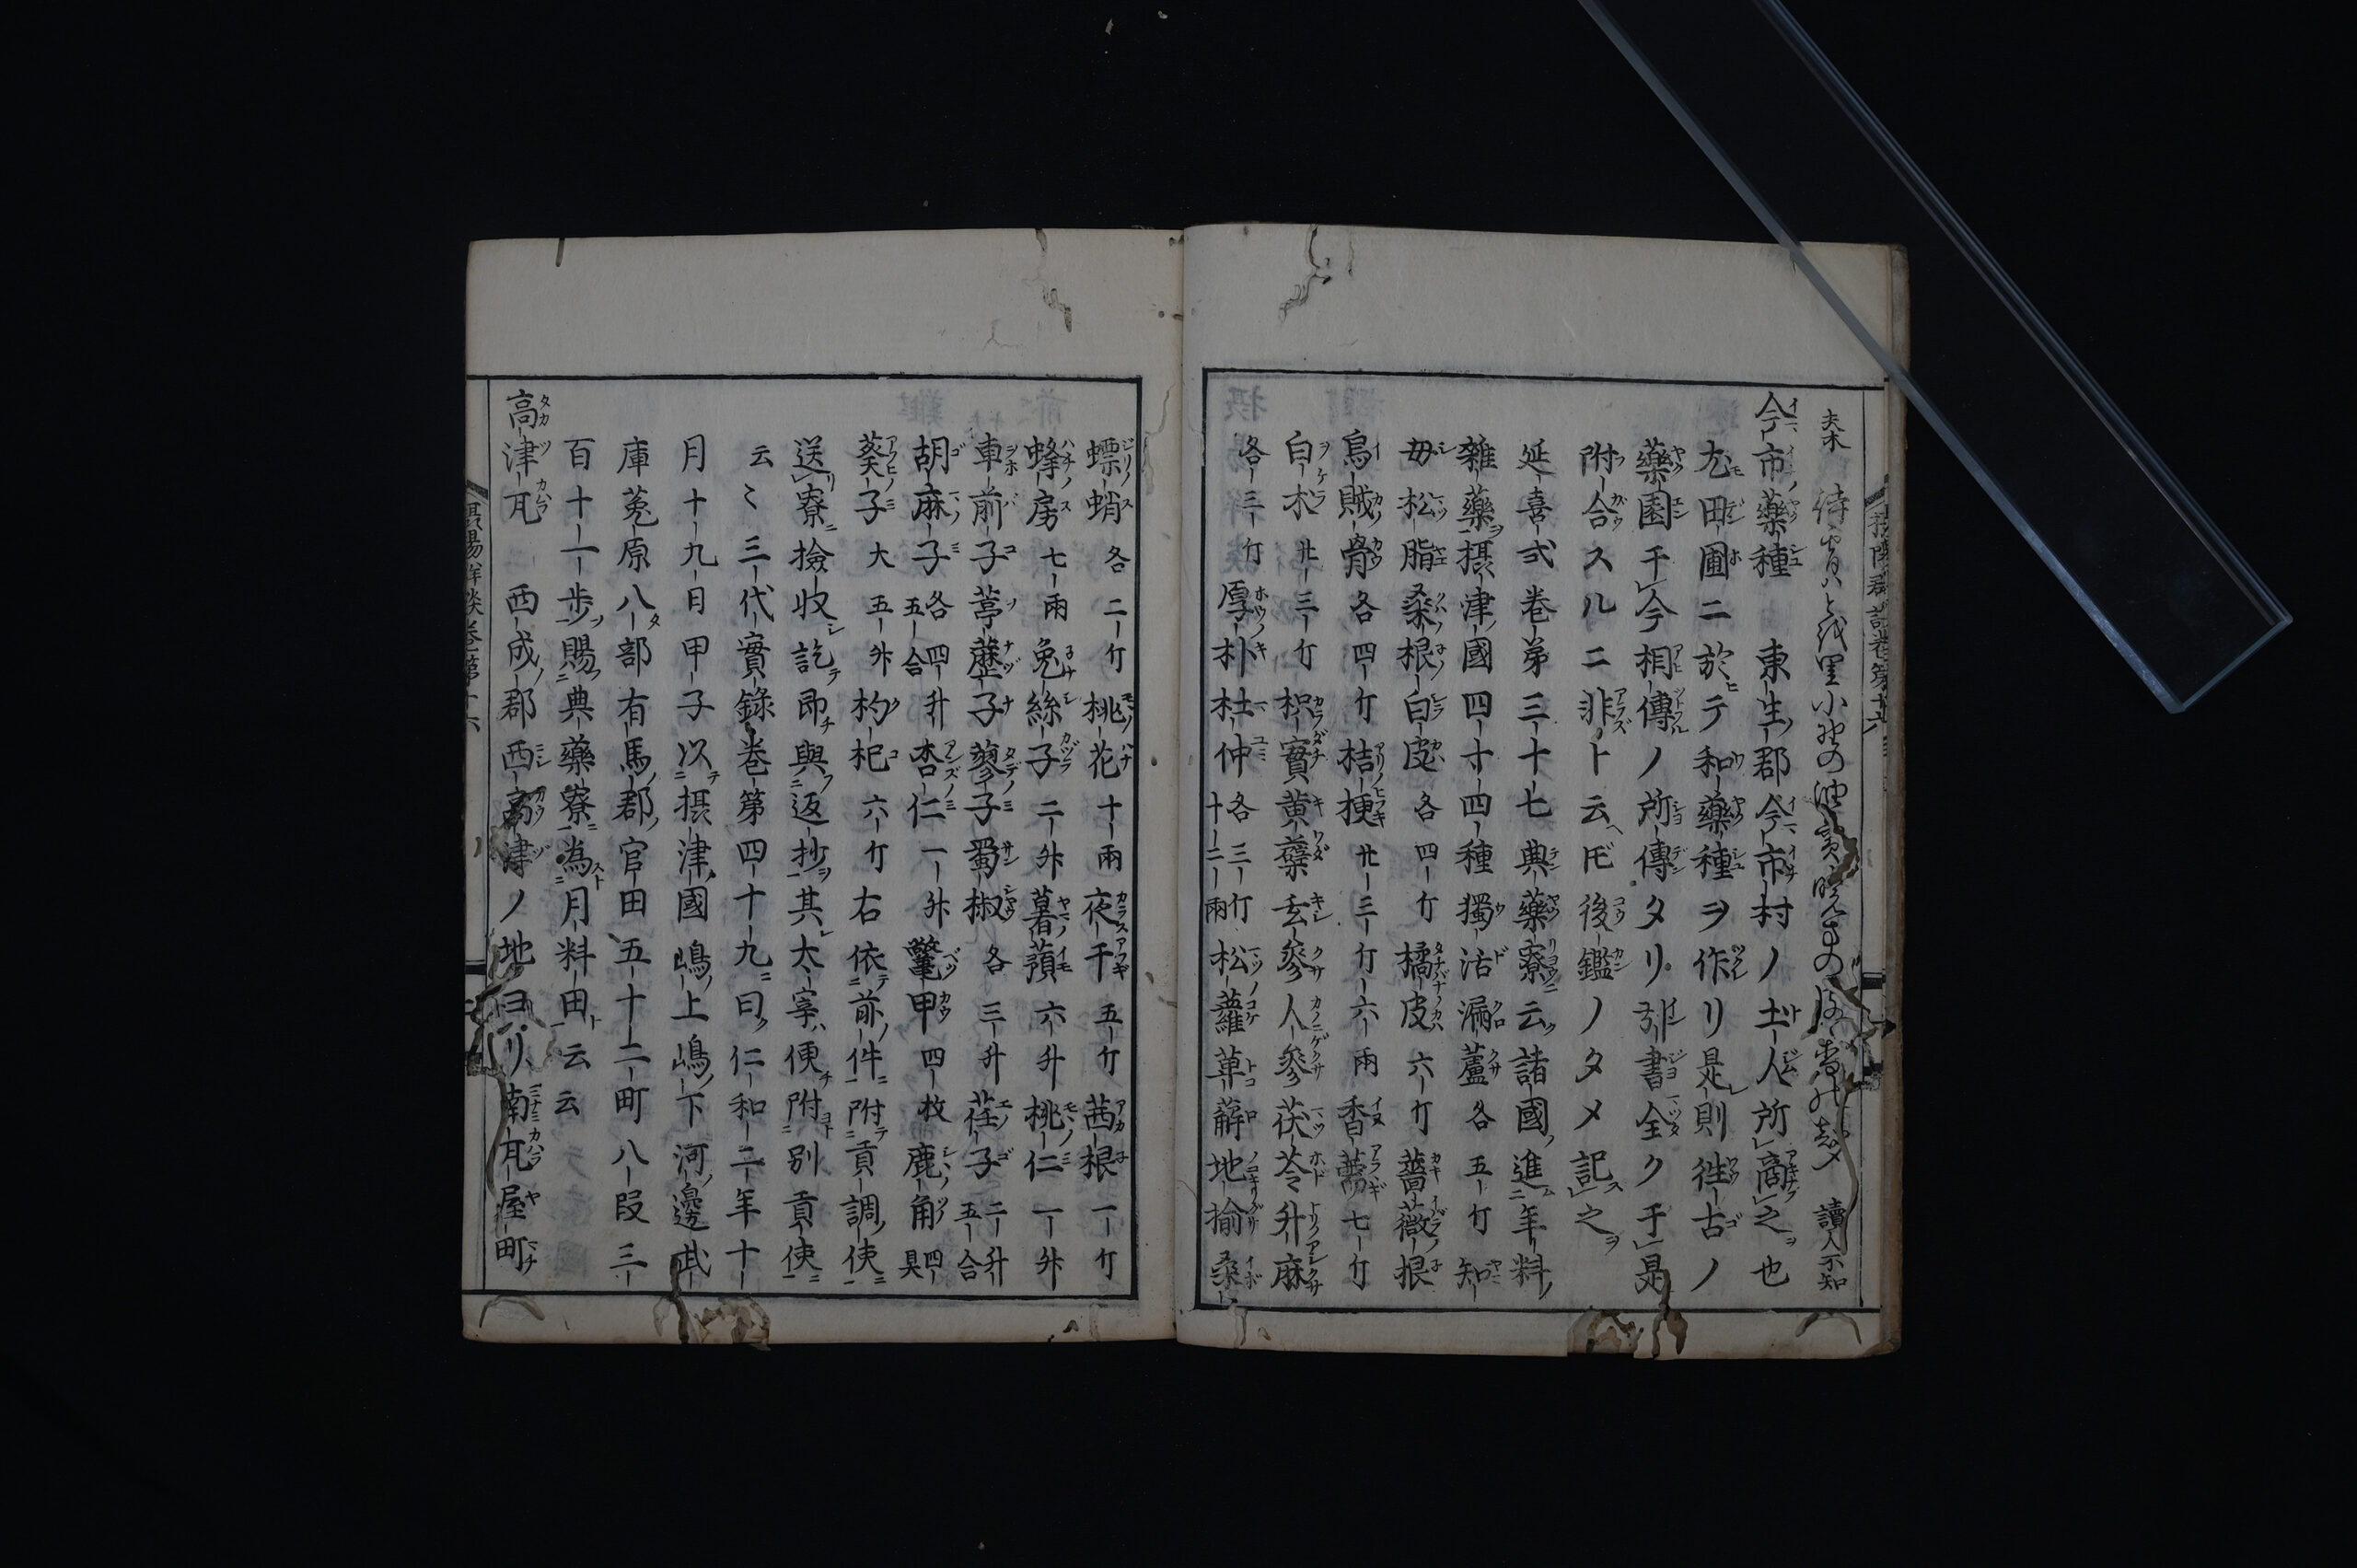 今市藥種 東生郡今市村ノ土人所商之也
尤田圃ニ於テ和藥種ヲ作リ是則徃古ノ
藥園于今相傳ノ所傳タリ引書全ク于是
附合スルニ非ト云ヘ𪜈後鑑ノタメ記之
延喜式卷第三十七典藥寮云諸國進年料
雜藥攝津國四十四種獨活漏蘆各五斤知
毋松脂桑根白皮各四斤橘皮六斤薔薇根
烏賊骨各四斤桔梗廿三斤六兩香薷七斤
白朮廿三斤枳實黄蘗玄參人參茯苓升麻
各三斤厚朴杜仲各三斤十二兩松蘿草薢地揄桑
螵蛸各二斤桃花十兩夜干五斤茜根一斤
蜂房七兩兔絲子二升暑蕷六升桃仁一升
車前子葶藶子蓼子蜀椒各三升荏子二升五合
胡麻子各四升五合杏仁一升鼈甲四枚鹿角四具
葵子大五升枸杞六斤右依前件附貢調使
送寮撿收訖即與返抄其太宰便附別貢使
云〻三代實錄卷第四十九曰仁和二年十
月十九日甲子以攝津國嶋上嶋下河邊武
庫菟原八部有馬郡官田五十二町八段三
百十一歩賜典藥寮為月料田云云
高津瓦 西成郡西高津ノ地ヨリ南瓦屋町